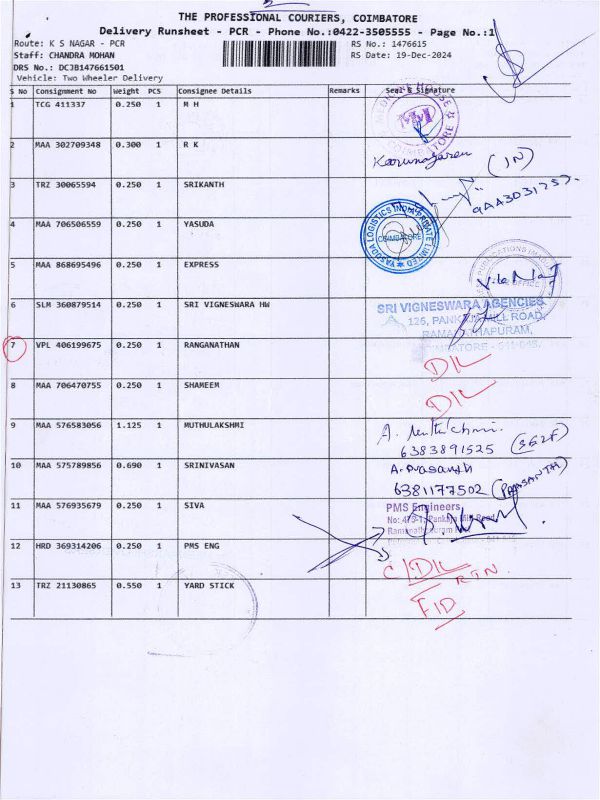 THE PROFESSIONAL COURIERS, COIMBATORE
Delivery Runsheet - PCR - Phone No.:0422-3505555 - Page No.:1
Route: K S NAGAR - PCR
RS No.: 1476615
Staff: CHANDRA MOHAN
RS Date: 19-Dec-2024
DRS No.: DCJB147661501
Vehicle: Two Wheeler Delivery
S No Consignment No Weight PCS Consignee Details Remarks Seal & Signature
1 TCG 411337 0.250 1 M H
2 MAA 302709348 0.300 1 R K
Karunagaran (IN)
3 TRZ 30065594 0.250 1 SRIKANTH
4 MAA 706506559 0.250 1 YASUDA
YASUDA LOGISTICS INDIA PRIVATE LIMITED
COIMBATORE
5 MAA 868695496 0.250 1 EXPRESS
6 SLM 360879514 0.250 1 SRI VIGNESWARA HW
SRI VIGNESWARA AGENCIES
126, PANKAJA MILL ROAD,
RAMANATHAPURAM,
7 VPL 406199675 0.250 1 RANGANATHAN
DIL
8 MAA 706470755 0.250 1 SHAMEEM
DIL
9 MAA 576583056 1.125 1 MUTHULAKSHMI
6383891525
10 MAA 575789856 0.690 1 SRINIVASAN
A. Prasanth
6381177502 (PRASANTH)
11 MAA 576935679 0.250 1 SIVA
PMS Engineers
12 HRD 369314206 0.250 1 PMS ENG
C/DIL
RTN
13 TRZ 21130865 0.550 1 YARD STICK
FID